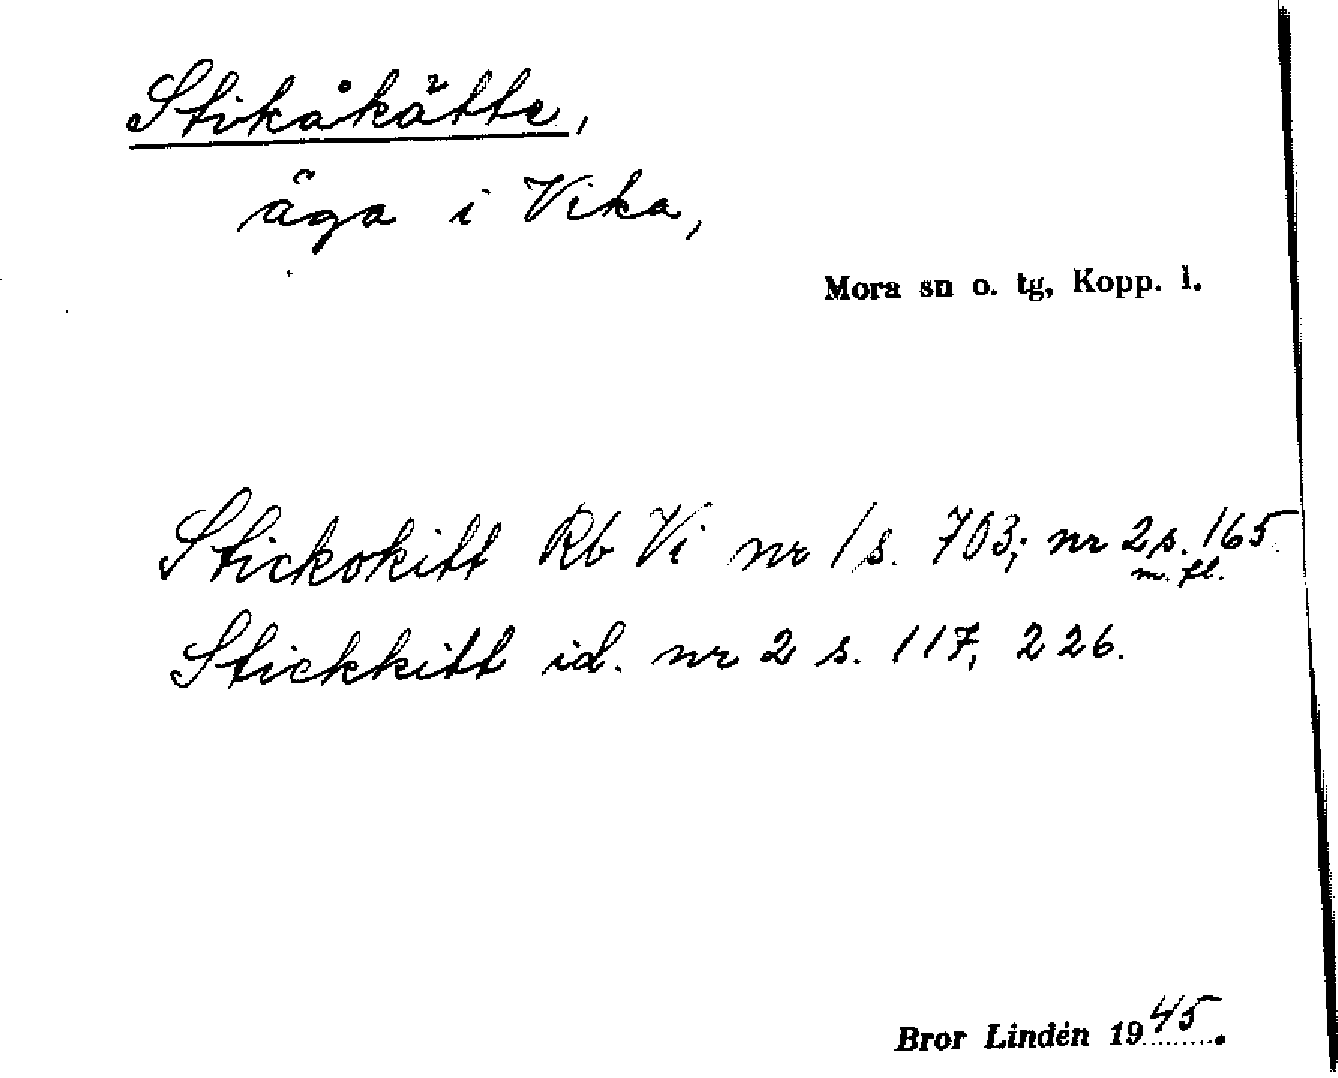 Stikåkätte,
äga i Vika,
Mora sn o. tg, Kopp. l.
Stickokitt Rb Vi nr 1 s. 703; nr 2 s. 165
m. fl.
Stickkitt id. nr 2 s. 117, 226.
Bror Lindén 1945.